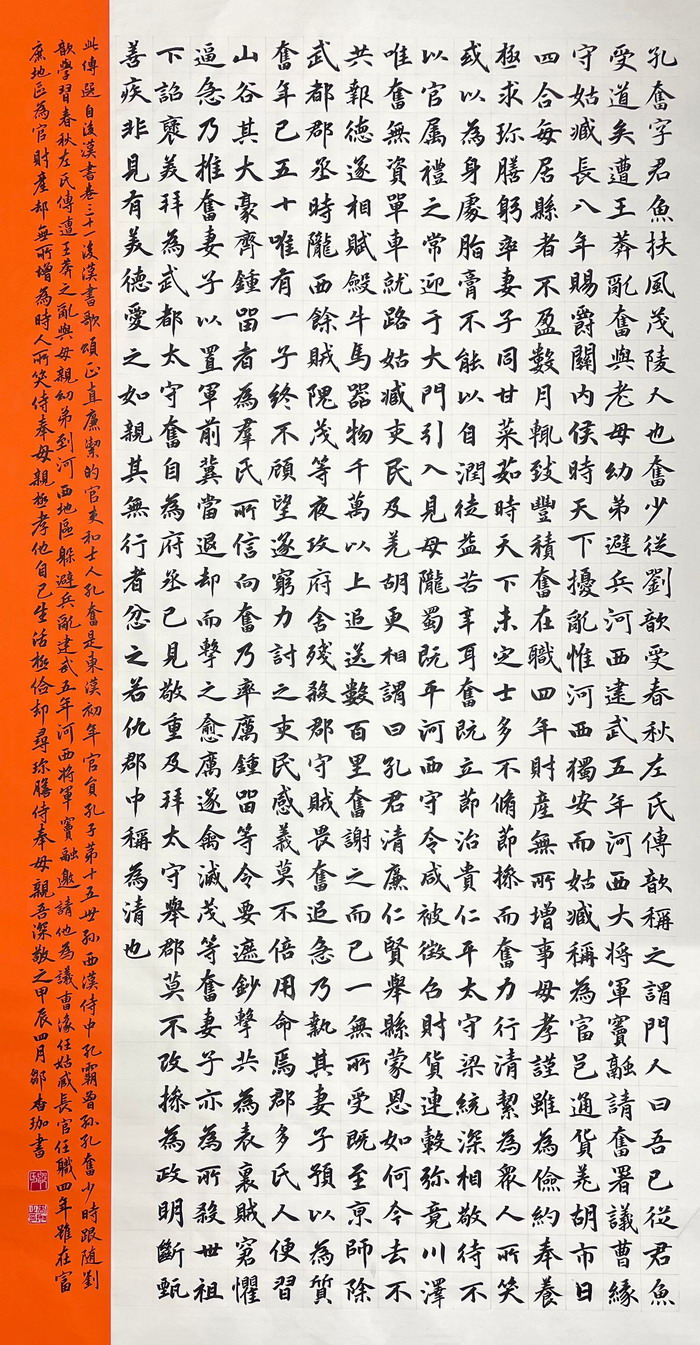 孔奮字君魚扶風茂陵人也奮少從劉歆受春秋左氏傳歆稱之謂門人曰吾已從君魚
受道矣遭王莽亂奮與老母幼弟避兵河西建武五年河西大將軍竇融請奮署議曹緣
守姑臧長八年賜爵關內侯時天下擾亂惟河西獨安而姑臧稱為富邑通貨羌胡市日
四合每居縣者不盈數月輒致豐積奮在職四年財產無所增事母孝謹雖為儉約奉養
極求珎膳躬率妻子同甘菜茹時天下未定士多不脩節操而奮力行清絜為眾人所笑
或以為身處脂膏不能以自潤徒益苦辛耳奮既立節治貴仁平太守梁統深相敬待不
以官属禮之常迎于大門引入見母隴蜀既平河西守令咸被徵召財貨連轂弥竟川澤
唯奮無資單車就路姑臧吏民及羌胡更相謂曰孔君清廉仁賢舉縣蒙恩如何今去不
共報德遂相賦斂牛馬器物千萬以上追送數百里奮謝之而已一無所受既至京師除
武都郡丞時隴西餘賊隗茂等夜攻府舍殘殺郡守賊畏奮追急乃執其妻子預以為質
奮年已五十唯有一子終不顧望遂窮力討之吏民感義莫不倍用命焉郡多氐人便習
山谷其大豪齊鍾留者為羣氐所信向奮乃率厲鍾留等令要遮鈔擊共為表裏賊窘懼
逼急乃推奮妻子以置軍前冀當退却而擊之愈厲遂禽滅茂等奮妻子亦為所殺世祖
下詔襃美拜為武都太守奮自為府丞已見敬重及拜太守舉郡莫不改操為政明斷甄
善疾非見有美德愛之如親其無行者忿之若仇郡中稱為清也
此傳選自後漢書卷三十一後漢書歌頌正直廉潔的官吏和士人孔奮是東漢初年官員孔子第十五世孫西漢侍中孔霸曾孫孔奮少時跟随劉
歆學習春秋左氏傳遭王莽之亂與母親幼弟到河西地區躲避兵亂建武五年河西將軍竇融邀請他為議曹掾任姑臧長官任職四年雖在富
庶地區為官財產却無所增為時人所笑侍奉母親極孝他自己生活極儉却尋珎膳侍奉母親吾深敬之甲辰四月鄒春珈書